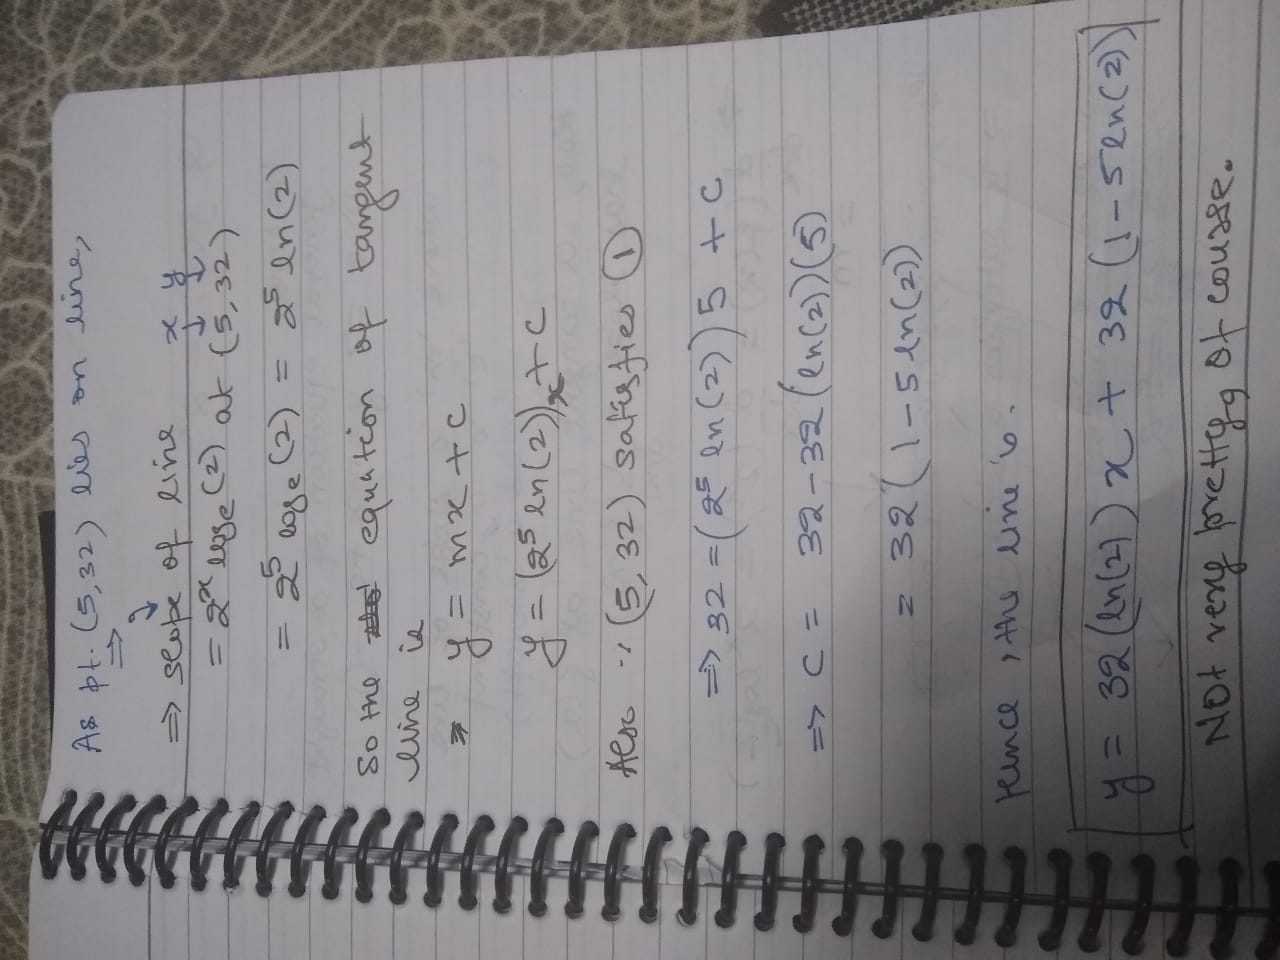 As pt. (5,32) lies on line,
⇒
⇒ slope of line x y
= 2^x log_e (2) at (5, 32)
= 2^5 log_e (2) = 2^5 ln(2)
So the equation of tangent
line is
⇒ y = mx + c
y = (2^5 ln(2))x + c
Also ∵ (5, 32) satisfies ①
⇒ 32 = (2^5 ln(2)) 5 + c
⇒ c = 32 - 32 (ln(2))(5)
= 32 (1 - 5 ln(2))
Hence, the line is.
y = 32 (ln(2)) x + 32 (1 - 5 ln(2))
Not very pretty, of course.